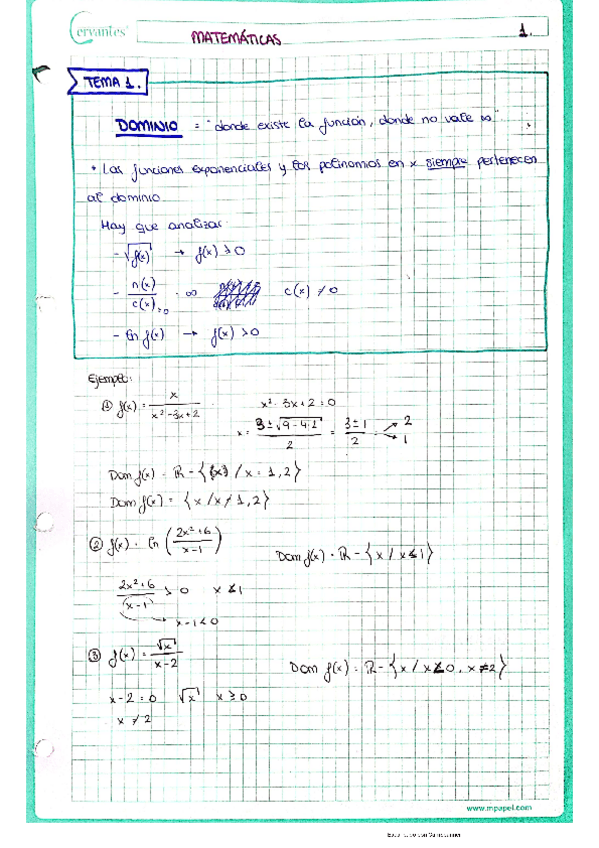 Cervantes
MATEMÁTICAS
1.
TEMA 1.
DOMINIO = "donde existe la función, donde no vale ∞"
* Las funciones exponenciales y los polinomios en x siempre pertenecen
al dominio.
Hay que analizar:
- √f(x) → f(x) ≥ 0
- n(x)/c(x) = ∞ c(x) ≠ 0
- ln f(x) → f(x) > 0
Ejemplo:
① f(x) = x/(x²-3x+2) x² - 3x + 2 = 0
x = (3 ± √(9-4·2))/2 = (3 ± 1)/2 → 2 → 1
Dom f(x) = R - { / x = 1, 2}
Dom f(x) = {x / x ≠ 1, 2}
② f(x) = ln ((2x²+6)/(x-1)) Dom f(x) = R - {x / x ≤ 1}
(2x²+6)/(x-1) > 0 x ≤ 1
→ x - 1 < 0
③ f(x) = √x/(x-2) Dom f(x) = R - {x / x < 0, x = 2}
x - 2 = 0 √x x ≥ 0
x ≠ 2
www.mpapel.com